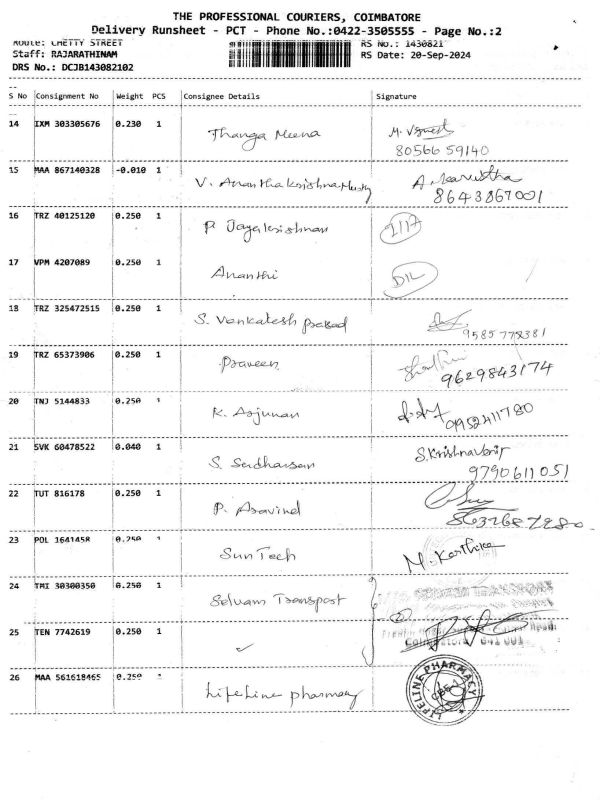 THE PROFESSIONAL COURIERS, COIMBATORE
Delivery Runsheet - PCT - Phone No.:0422-3505555 - Page No.:2
Route: CHETTY STREET RS No.: 1430821
Staff: RAJARATHINAM RS Date: 20-Sep-2024
DRS No.: DCJB143082102
S No Consignment No Weight PCS Consignee Details Signature
14 IXM 303305676 0.230 1 Thanga Meena M. Vignesh
80566 59140
15 MAA 867140328 -0.010 1 V. Ananthakrishna Murthy
8643867001
16 TRZ 40125120 0.250 1 P. Jayakrishnan
17 VPM 4207089 0.250 1 Ananthi D/L
18 TRZ 325472515 0.250 1 S. Venkatesh prasad
9585778381
19 TRZ 65373906 0.250 1 Praveen
9629843174
20 TNJ 5144833 0.250 1 K. Arjunan
9952411780
21 SVK 60478522 0.040 1 S. Sudharsan S. Krishnaveni
9790611051
22 TUT 816178 0.250 1 P. Aravind
23 POL 1641458 0.250 1 Sun Tech M. Karthika
24 TMI 30300350 0.250 1 Selvam Transport
25 TEN 7742619 0.250 1 ✓
Coimbatore 641 001
26 MAA 561618465 0.250 Lifeline pharmacy LIFELINE PHARMACY CBE-1